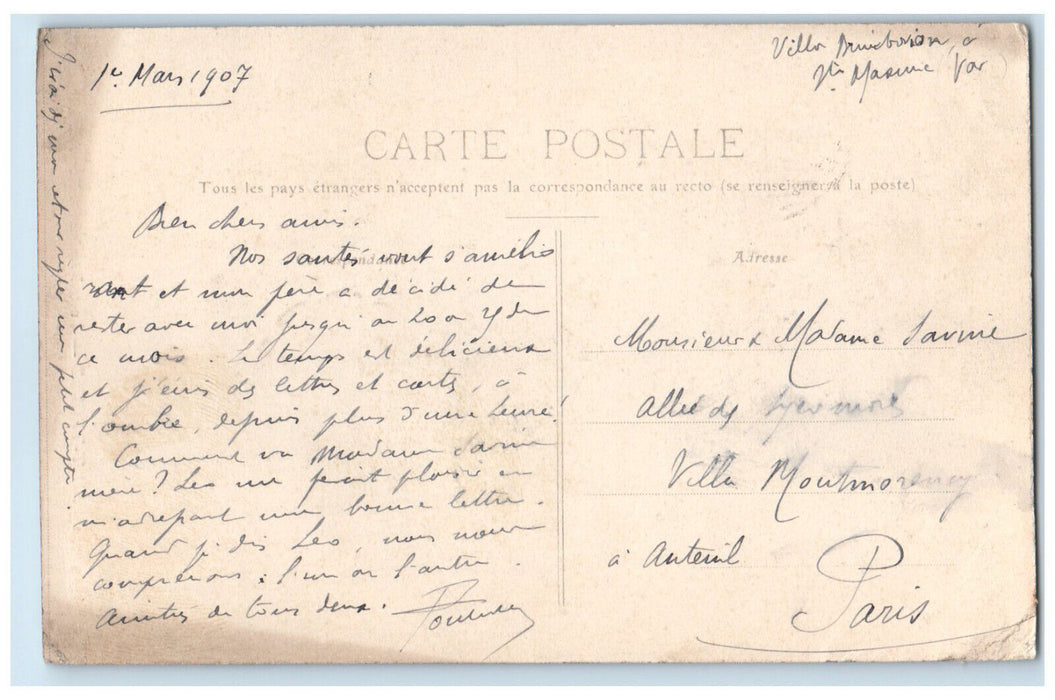 1er Mars 1907
Villa à
Ste Maxime (Var)
CARTE POSTALE
Tous les pays étrangers n'acceptent pas la correspondance au recto (se renseigner à la poste)
Bien chers amis.
Nos santés vont s'amélio
rant et mon père a décidé de
rester avec moi jusqu'au 20 ou 25 de
ce mois. Le temps est délicieux
et j'écris des lettres et cartes, à
l'ombre, depuis plus d'une heure!
Comment va Madame Savine
mère? Leo me ferait plaisir en
m'adressant une bonne lettre.
Quand je dis Leo, nous nous
comprenons: l'un ou l'autre.
Amitiés de tous deux.
Adresse
Monsieur & Madame Savine
Allée des
Villa Montmorency
à Auteuil
Paris
J'irai et me régler mon petit compte.